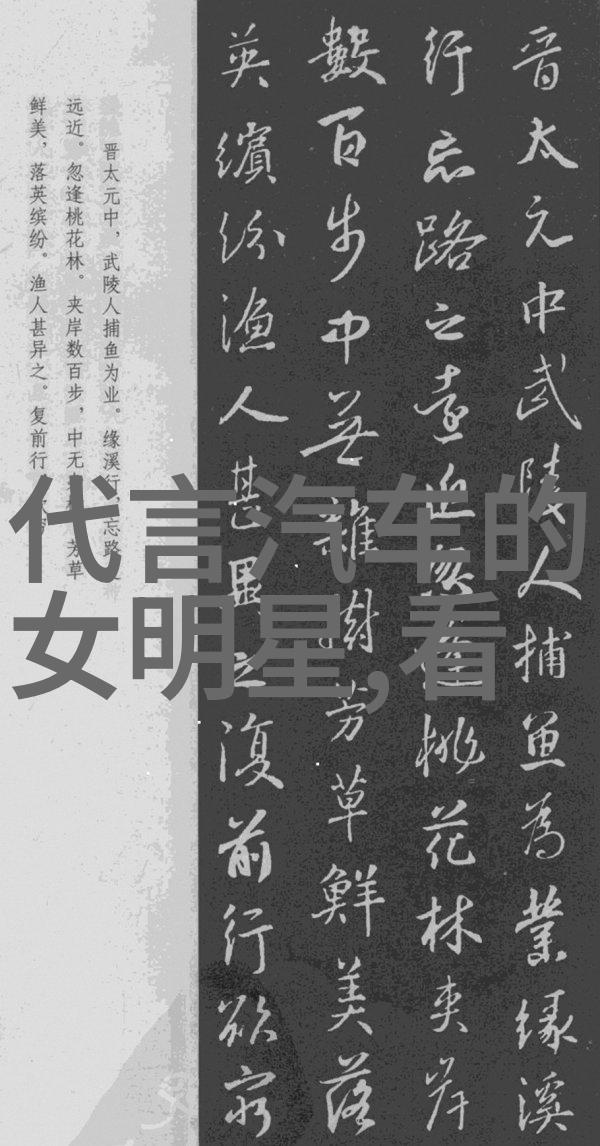 晋太元中武陵人捕鱼为业缘溪
行忘路之远近忽逢桃花林夹岸
数百步中无杂树芳草鲜美落
英缤纷渔人甚异之复前行欲穷
晋太元中，武陵人捕鱼为业。缘溪行，忘路
远近。忽逢桃花林。夹岸数百步，中无 芳草
鲜美，落英缤纷。渔人甚异之。复前行
代言汽车的
女明星,看